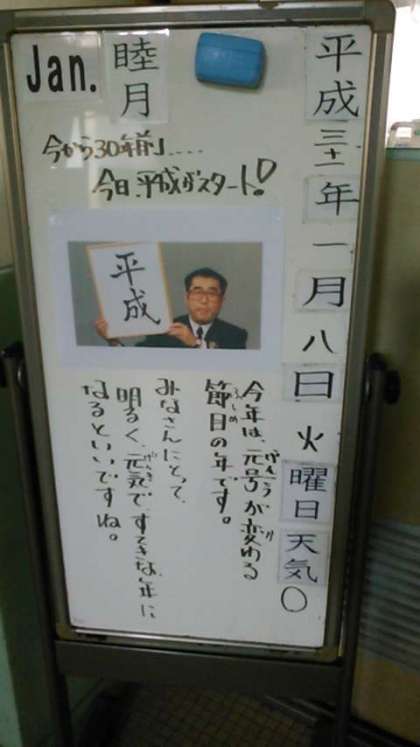 Jan.
睦月
平成三十一年一月八日火曜日天気○
今から30年前」....
今日、平成がスタート!
平成
今年は、元号が変わる
節目の年です。
みなさんにとって、
明るく、元気ですてきな年に
なるといいですね。